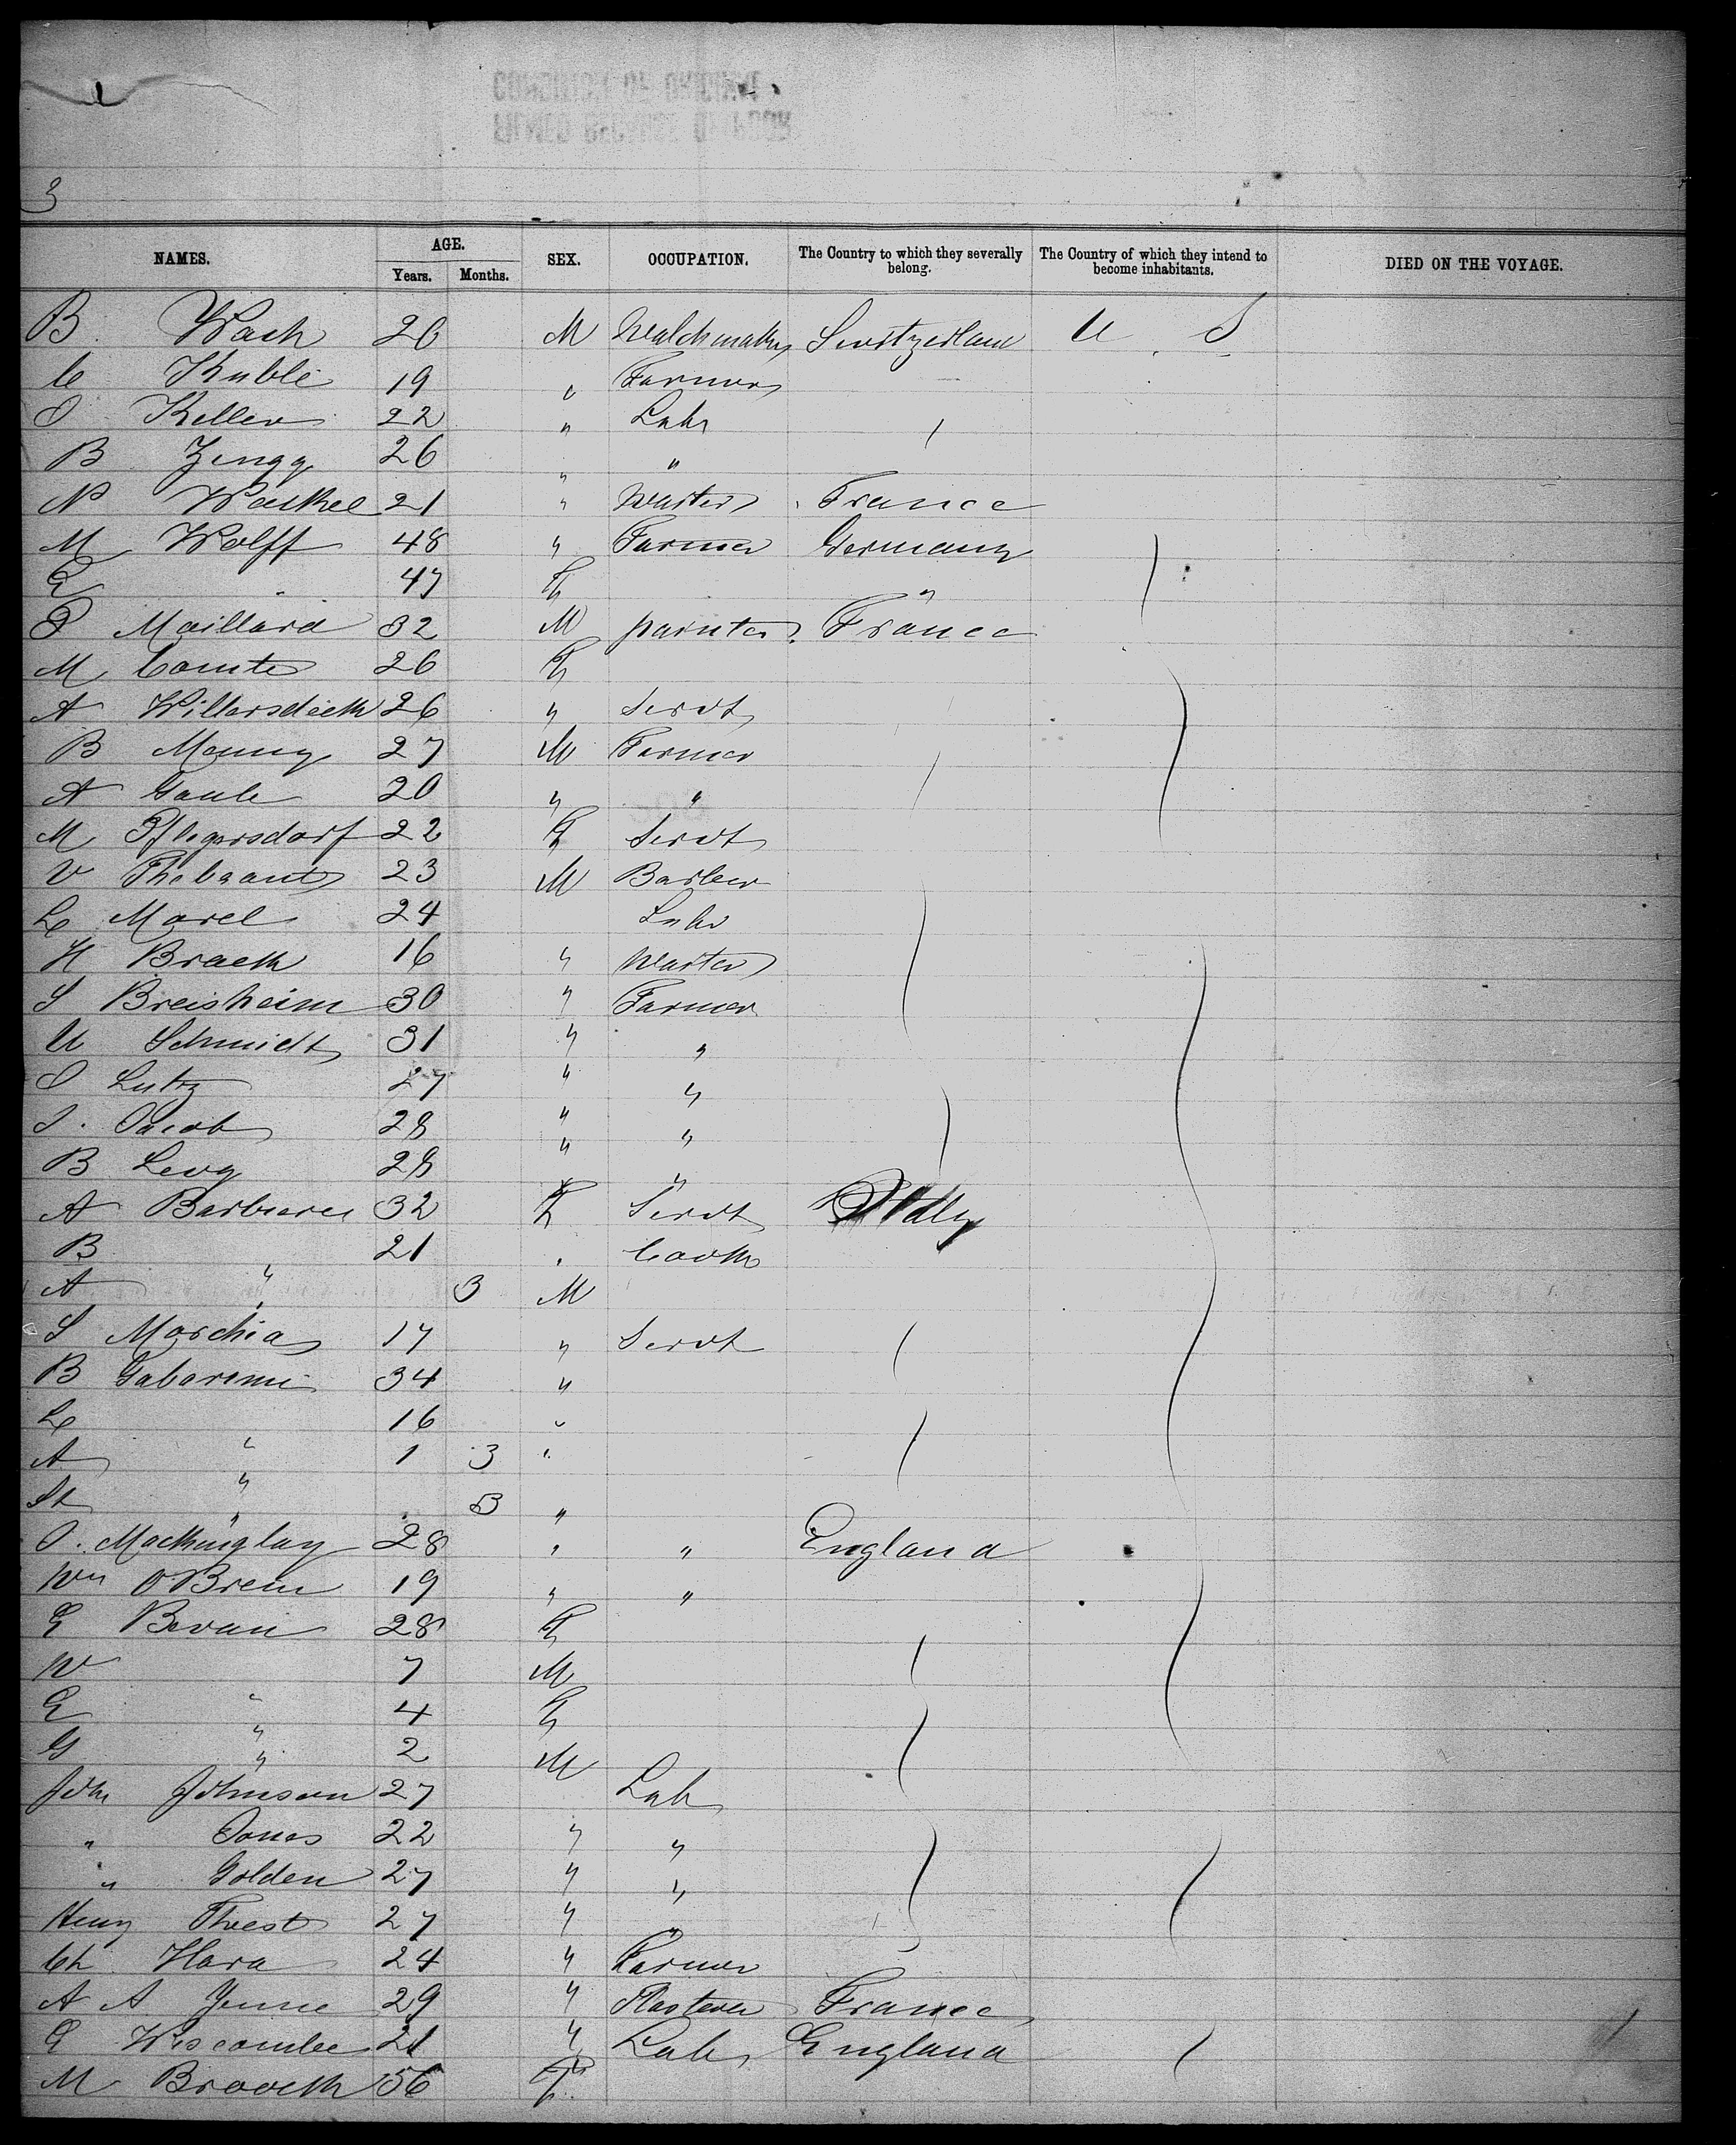 CONDITION OF ORIGINAL
FILMED BECAUSE OF POOR
3
NAMES. AGE. Years. Months. SEX. OCCUPATION. The Country to which they severally belong. The Country of which they intend to become inhabitants. DIED ON THE VOYAGE.
B Wach 26 M Watchmaker Switzerland U S
C Kuble 19 " Farmer
J Keller 22 " Labr
B Zengg 26 " "
N Waskel 21 " Waiter France
M Wolff 48 " Farmer Germany
E " 47 F "
J Maillard 32 M painter France
M Comte 26 F
A 26 " Servt
B Menny 27 M Farmer
A Gaule 20 " "
M Pflegersdorf 22 F Servt
V 23 M Barber
L Morel 24 Labr
H Braeth 16 " Waiter
S Breisheim 30 " Farmer
U Schmidt 31 " "
J Lutz 27 " "
J. Jacob 28 " "
B Levy 28 " "
A Barbieres 32 F Servt Italy
B " 21 " Cook
A " 3 M
S Marchia 17 " Servt
B Gabaremi 34 "
L " 16 "
A " 1 3 "
St " 3 "
J. Mackinglay 28 " " England
Wm O Brein 19 " "
E Bevan 28 F
W 7 M
E " 4 F
G " 2 M
John Johnson 27 Lab
" Jones 22 " "
" Golden 27 " "
Henry Thest 27 " "
Ch Hara 24 " Farmer
A A Jenne 29 " Plasterer France
E Wiscombe 21 " Lab England
M Brooeth 56 F